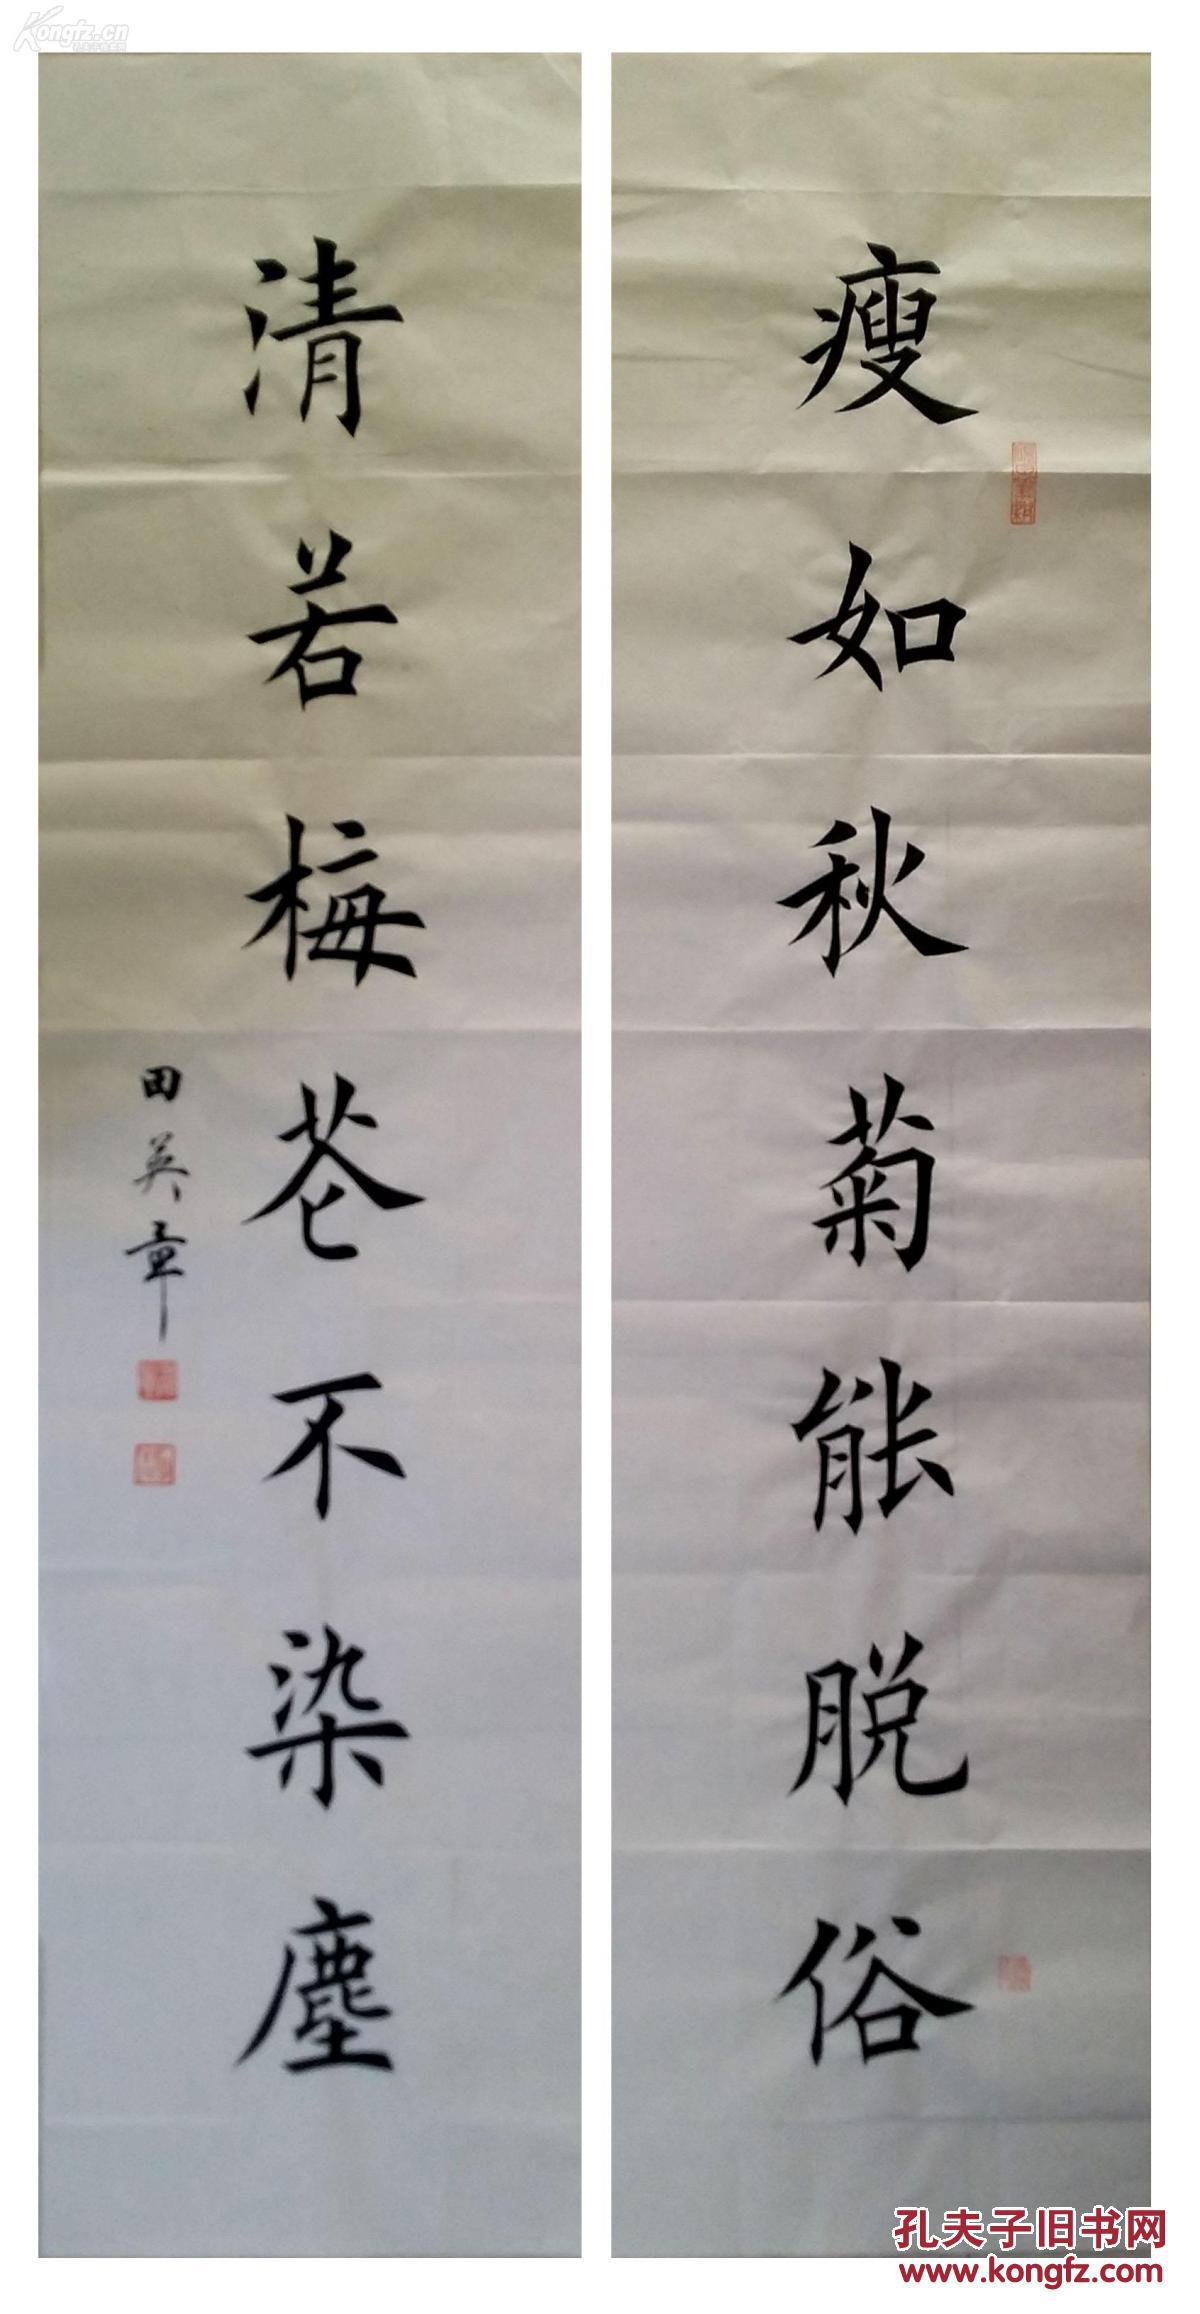 Kongfz.cn
瘦如秋菊能脱俗
清若梅花不染塵
田英章
孔夫子旧书网
www.kongfz.com